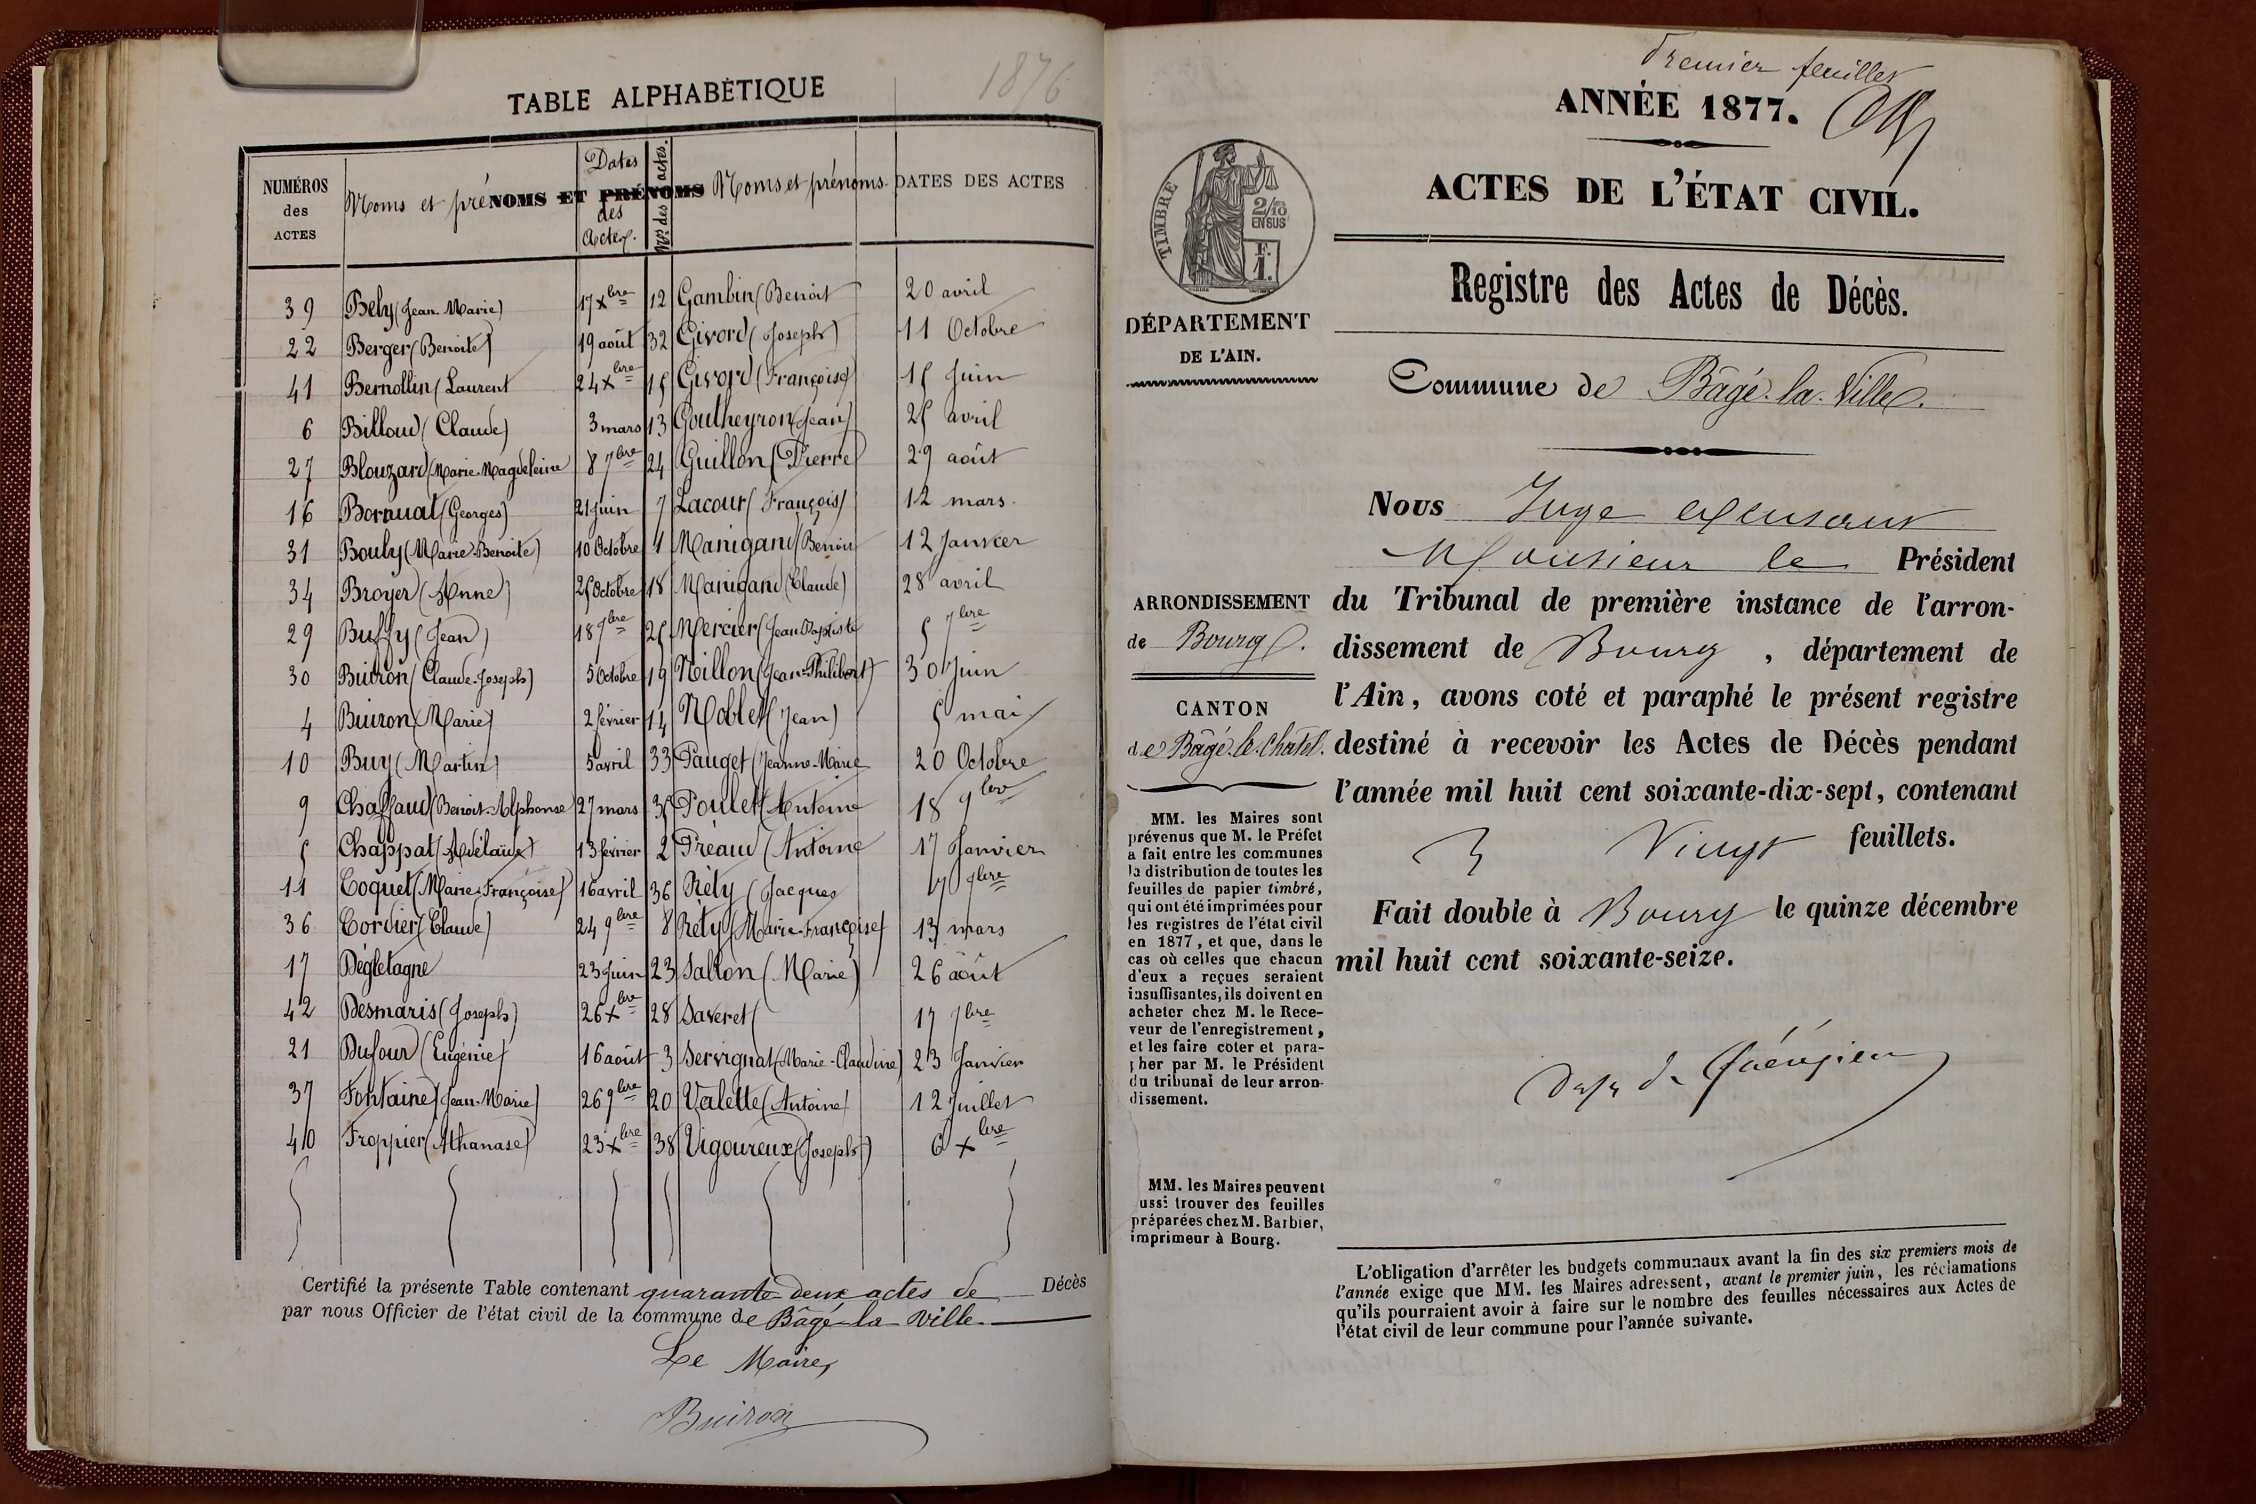 1876
TABLE ALPHABÉTIQUE
NUMÉROS des ACTES
Noms et prénoms
NOMS ET PRÉNOMS
Dates des Actes.
Nos des actes.
Noms et prénoms.
DATES DES ACTES
39 Bely (Jean-Marie) 17 Xbre 12 Gambin (Benoit 20 avril
22 Berger (Benoite) 19 août 32 Givord (Joseph) 11 Octobre
41 Bernollin (Laurent 24 Xbre 15 Givord (Françoise) 15 Juin
6 Billoud (Claude) 3 mars 13 Goutheyron (Jean) 25 avril
27 Blouzard (Marie-Magdeleine 8 7bre 24 Guillon (Pierre) 29 août
16 Bornuat (Georges) 21 juin 7 Lacour (François) 12 mars.
31 Bouly (Marie-Benoite) 10 Octobre 1 Manigand (Benoit 12 Janvier
34 Broyer (Anne) 25 Octobre 18 Manigand (Claude) 28 avril
29 Buffy (Jean) 18 9bre 25 Mercier (Jean Baptiste 5 7bre
30 Buiron (Claude-Joseph) 5 Octobre 19 Nillon (Jean-Philibert) 30 Juin
4 Buiron (Marie) 2 février 14 Noblet (Jean) 5 mai
10 Buy (Martin) 5 avril 33 Pauget (Jeanne-Marie 20 Octobre
9 Chaffaud (Benoit-Alphonse) 27 mars 35 Poulet (Antoine 18 9bre
5 Chappat (Adélaïde) 13 février 2 Préaud (Antoine 17 Janvier
11 Coquet (Marie-Françoise) 16 avril 36 Réty (Jacques 9bre
36 Cordier (Claude) 24 9bre 8 Réty (Marie-Françoise) 13 mars
17 Dégletagne 23 Juin 23 Sallon (Marie) 26 août
42 Desmaris (Joseph) 26 Xbre 28 Saveret ( 17 7bre
21 Dufour (Eugénie) 16 août 3 Servignat (Marie-Claudine) 23 Janvier
37 Fontaine (Jean-Marie) 26 9bre 20 Valette (Antoine) 12 Juillet
40 Froppier (Athanase) 23 Xbre 38 Vigoureux (Joseph) 6 Xbre
Certifié la présente Table contenant quarante-deux actes de Décès
par nous Officier de l'état civil de la commune de Bâgé-la-Ville.
Le Maire,
Buiron
Premier feuillet
ANNÉE 1877.
ACTES DE L'ÉTAT CIVIL.
TIMBRE
2/10 EN SUS
F. 1.
DÉPARTEMENT
DE L'AIN.
Registre des Actes de Décès.
Commune de Bâgé-la-Ville.
ARRONDISSEMENT
de Bourg.
CANTON
de Bâgé-le-Châtel.
MM. les Maires sont
prévenus que M. le Préfet
a fait entre les communes
la distribution de toutes les
feuilles de papier timbré,
qui ont été imprimées pour
les registres de l'état civil
en 1877, et que, dans le
cas où celles que chacun
d'eux a reçues seraient
insuffisantes, ils doivent en
acheter chez M. le Rece-
veur de l'enregistrement,
et les faire coter et para-
pher par M. le Président
du tribunal de leur arron-
dissement.
MM. les Maires peuvent
ussi trouver des feuilles
préparées chez M. Barbier,
imprimeur à Bourg.
Nous Juge
Monsieur le Président
du Tribunal de première instance de l'arron-
dissement de Bourg, département de
l'Ain, avons coté et paraphé le présent registre
destiné à recevoir les Actes de Décès pendant
l'année mil huit cent soixante-dix-sept, contenant
Vingt feuillets.
Fait double à Bourg le quinze décembre
mil huit cent soixante-seize.
L'obligation d'arrêter les budgets communaux avant la fin des six premiers mois de
l'année exige que MM. les Maires adressent, avant le premier juin, les réclamations
qu'ils pourraient avoir à faire sur le nombre des feuilles nécessaires aux Actes de
l'état civil de leur commune pour l'année suivante.